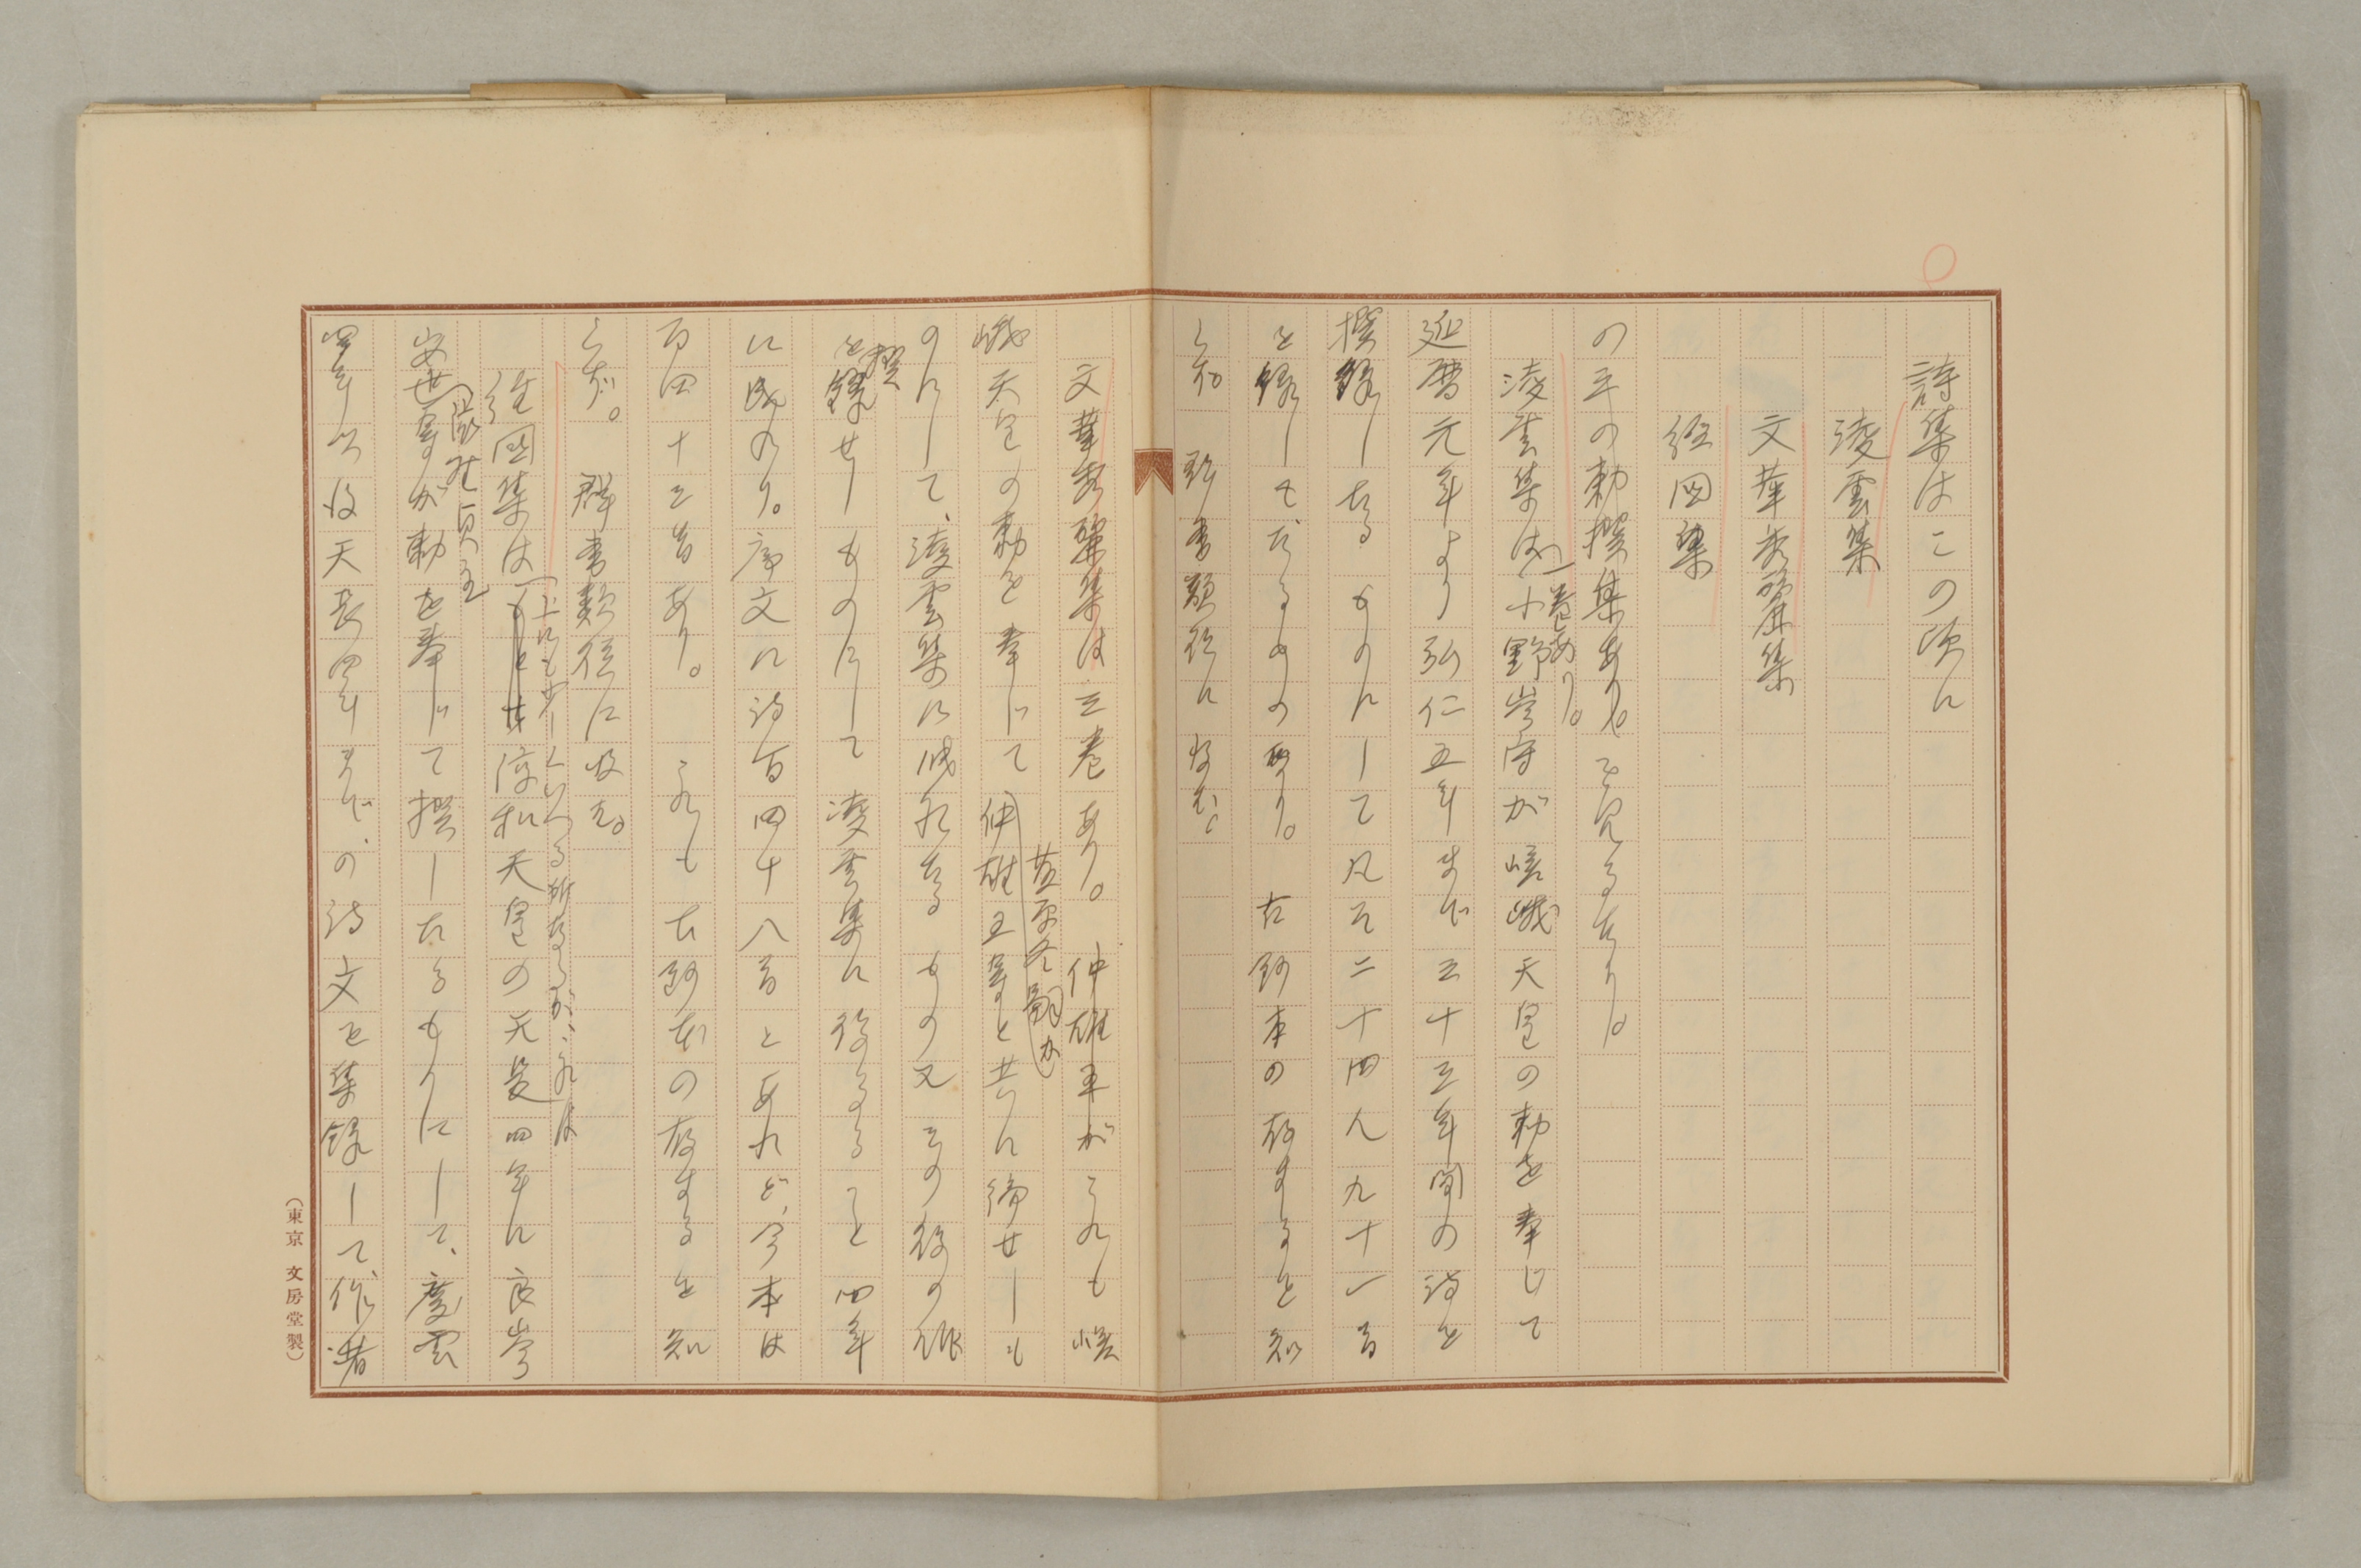 詩集はこの頃に
凌雲集
文華秀麗集
経国集
の三の勅撰集あり。
凌雲集は一巻あり。小野岑守が嵯峨天皇の勅を奉じて
延暦元年より弘仁五年まで三十三年間の詩を
撰録したるものにして凡そ二十四人九十一首
を録したるものなり。古鈔本の存するを知
らず。群書類従に収む。
文華秀麗集は三巻あり。仲雄王がこれも嵯
峨天皇の勅を奉じて菅原清
仲雄王等と共に
のにして、凌雲集に洩れたるもの又その後の
を撰録せしものにして凌雲集に後るること四年
に成れり。序文に詩百四十八首とあれど、今本は
百四十三首あり。これも古鈔本の存するを知
らず。群書類従に収む。
経国集は
淳和天皇の天長四年に良岑
安世
等が勅を奉じて撰したるものにして、慶雲
四年以後天長四年までの詩文を集録して、作者
(東京 文房堂製)